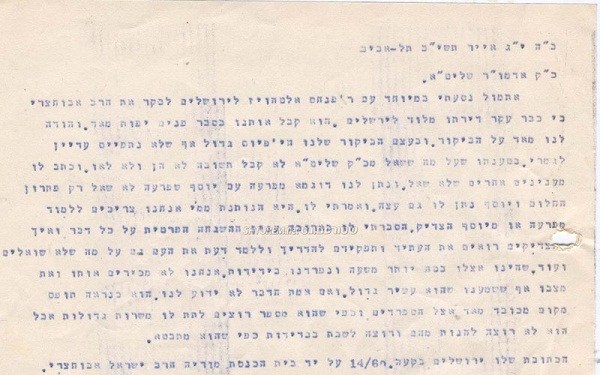 ב"ה י"ג אייר תשי"ב תל-אביב
כ"ק אדמו"ר שליט"א.
אתמול נסעתי במיוחד עם ר'פנחס אלטהויז לירושלים לבקר את הרב אבוחצרי
כי כבר עקר דירתו מלוד לירושלים. הוא קבל אותנו בסבר פנים יפות מאד.והודה
לנו מאד על הביקור.ובעצם הביקור שלנו הי'פיוס גדול אף שלא נתפייס עדיין
לגמרי.בטענתו שעל מה ששאל מכ"ק שליט"א לא קבל תשובה לא הן ולא לאו.וכתב לו
מענינים אחרים שלא שאל.ונתן לנו דוגמא מפרעה עם יוסף שפרעה לא שאל רק פתרון
החלום ויוסף נתן לו גם עצה.ואמרתי לו.היא הנותנת ממי אנחנו צריכים ללמוד
מפרעה או מיוסף הצדיק.הסברתי השגחה הפרטית על כל דבר ואיך
הצדיקים רואים את העתיד ותפקידם להדריך וללמד דעת את העם גם על מה שלא שואלים
ועוד.שהינו אצלו כמה יותר משעה ונפרדנו בידידות.אנחנו לא מכירים אותו ואת
מצבו אף ששמענו שהוא עשיר גדול.ואם אמת הדבר לא ידוע לנו.הוא כנראה תופס
מקום מכובד מאד אצל הספרדים וכפי שהוא מספר רוצים לתת לו משרות גדולות אבל
הוא לא רוצה להנות מהם ורוצה לשבת בבדידות כפי שהוא מתבטא.
הכתובת שלו ירושלים בקעה 14/60 על יד בית הכנסת מודיה הרב ישראל אבוחצרי.